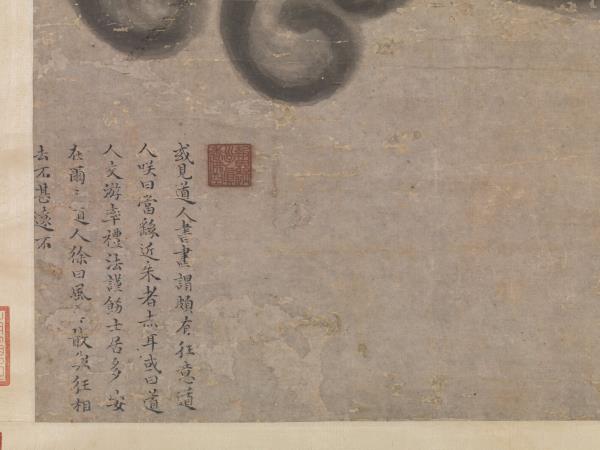 或見道人書畫謂頗有狂意道
人咲曰當繇近朱者赤耳或曰道
人交游率禮法謹飭士居多安
在爾道人徐曰風散與狂相
去不甚遠不